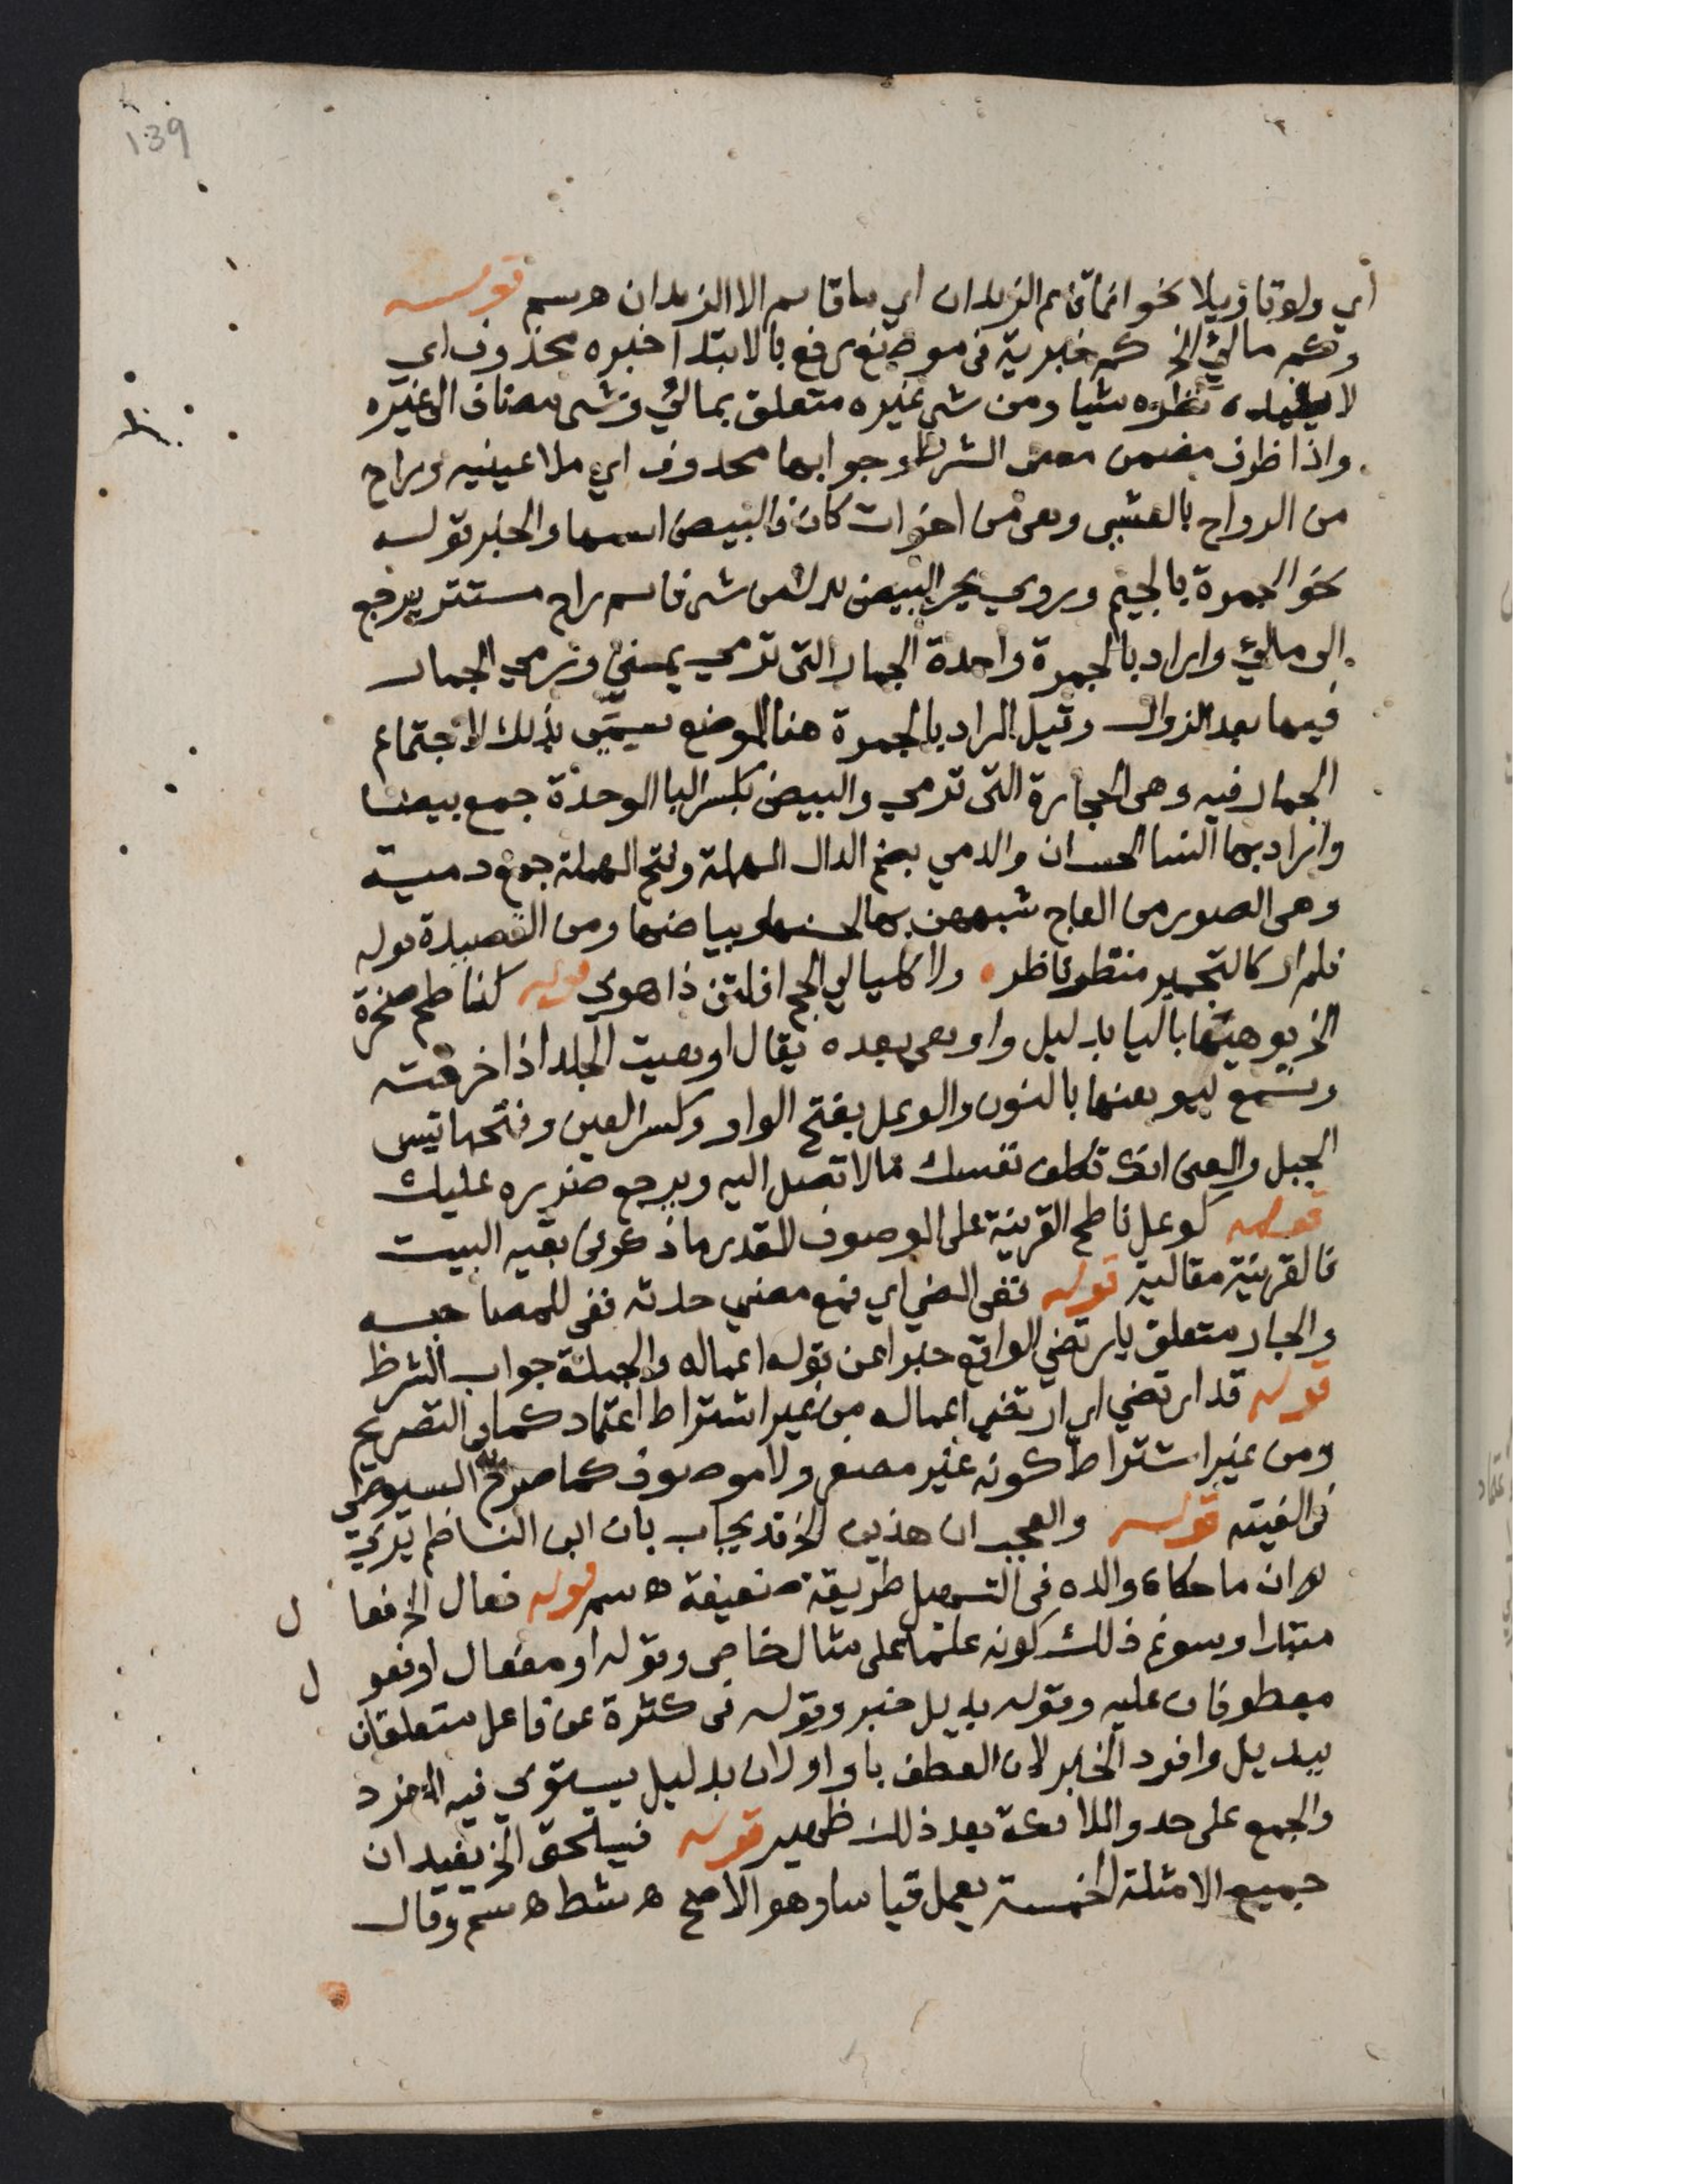 139
اي ولو تاويلا نحو انما قائم الزيدان اي ما قائم الا الزيدان ه سم قوله
وكم مالئ الخ كم خبرية في موضع رفع بالابتدا خبره محذوف اي
لا يفيده نظره شيا ومن شي غيره متعلق بمالئ وشي مضاف الى غيره
واذا ظرف مضمن معنى الشرط وجوابها محذوف اي ملا عينيه وراح
من الرواح بالعشي وهي من اخوات كان والبيض اسمها والخبر قوله
نحو الجمرة بالجيم وروي بجر البيض بدل من شي فاسم راح مستتر يرجع
الى مالئ واراد بالجمرة واحدة الجمار التي ترمي بمني وترمي الجمار
فيها بعد الزوال وقيل المراد بالجمرة هنا الموضع سمي بذلك لاجتماع
الجمار فيه وهي الحجارة التي ترمي والبيض بكسر البا الموحدة جمع بيضا
واراد بها النسا الحسان والدمي بضم الدال المهملة وفتح المهملة جمع دمية
وهي الصور من العاج شبههن بها لحسنها وبياضها ومن القصيدة قوله
فلم ار كالتجمير منظر ناظر ولا كليالي الحج افلتن ذا هوي قوله كناطح صخرة
الخ يوهيها باليا بدليل واوهي بعده يقال اوهيت الجلد اذا خرقته
وتسمع ليوهنها بالنون والوعل بفتح الواو وكسر العين وفتحها تيس
الجبل والمعنى انك تكلف نفسك ما لا تصل اليه ويرجع ضرره عليك
قوله كوعل ناطح القرينة على الموصوف المقدر ما ذكر في بقيه البيت
فالقرينة مقالية قوله ففي المضي اي فمع مضي حدثه ففي للمصاحبه
والجار متعلق بارتضي الواقع خبرا عن قوله اعماله والجملة جواب الشرط
قوله قد ارتضي اي ارتضي اعماله من غير اشتراط اعتماد كما في التصريح
ومن غير اشتراط كونه غير مصغر ولا موصوف كما صرح به السيوطي
في الفيته قوله والعجب ان هذين الخ قد يجاب بان ابن الناظم يري
ان ما حكاه والده في التسهيل طريقة ضعيفة ه سم قوله فعال الخ فعال
مبتدا وسوغ ذلك كونه علما على مثال خاص وقوله او مفعال او فعول
معطوفان عليه وقوله بديل خبر وقوله في كثرة عن فاعل متعلقان
ببديل وافرد الخبر لان العطف باو او لان بديل يستوي فيه المفرد
والجمع على حد والملائكة بعد ذلك ظهير قوله فيستحق الخ يفيد ان
جميع الامثلة الخمسة يعمل قياسا وهو الاصح ه شط ه سم وقال